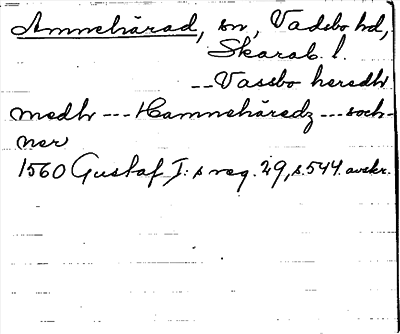 Amnehärad, sn, Vadsbo hd,
Skarab. l.
-- Vassbo heredh
medh --- Hamnehäredz --- soch-
ner
1560 Gustaf I:s reg. 29, s. 544. avskr.